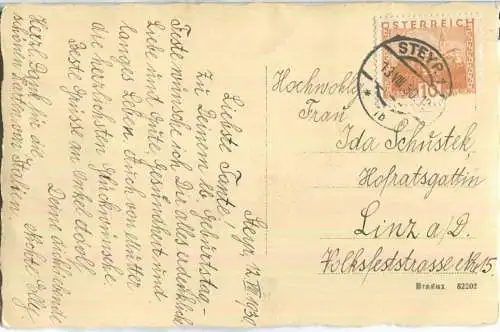 Steyr, 12. VII. 1930.
Liebste Tante!
Zu Deinem lb. Geburtstag-
feste wünsche ich Dir alles erdenklich
Liebe und Gute, Gesundheit und
langes Leben. Auch von Mutter
die herzlichsten Glückwünsche.
Beste Grüsse an Onkel Adolf.
Deine dichliebende
Nichte Elly.
Herzl. Dank für die
schönen Karten von Italien.
ÖSTERREICH
STEYR 1
1b
Hochwohlg.
Frau
Ida Schustek
Hofratsgattin
Linz a/D.
Volksfeststrasse No 15.
Bradux 82202